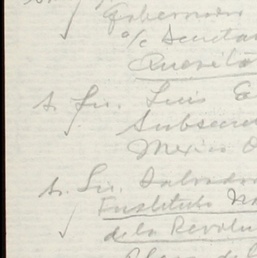 Gobernador
o/c Secretar
Querétar
Sr. Lic. Luis E
Subsecre
México D
Sr. Lic. Salvador
Instituto Na
de la Revolu